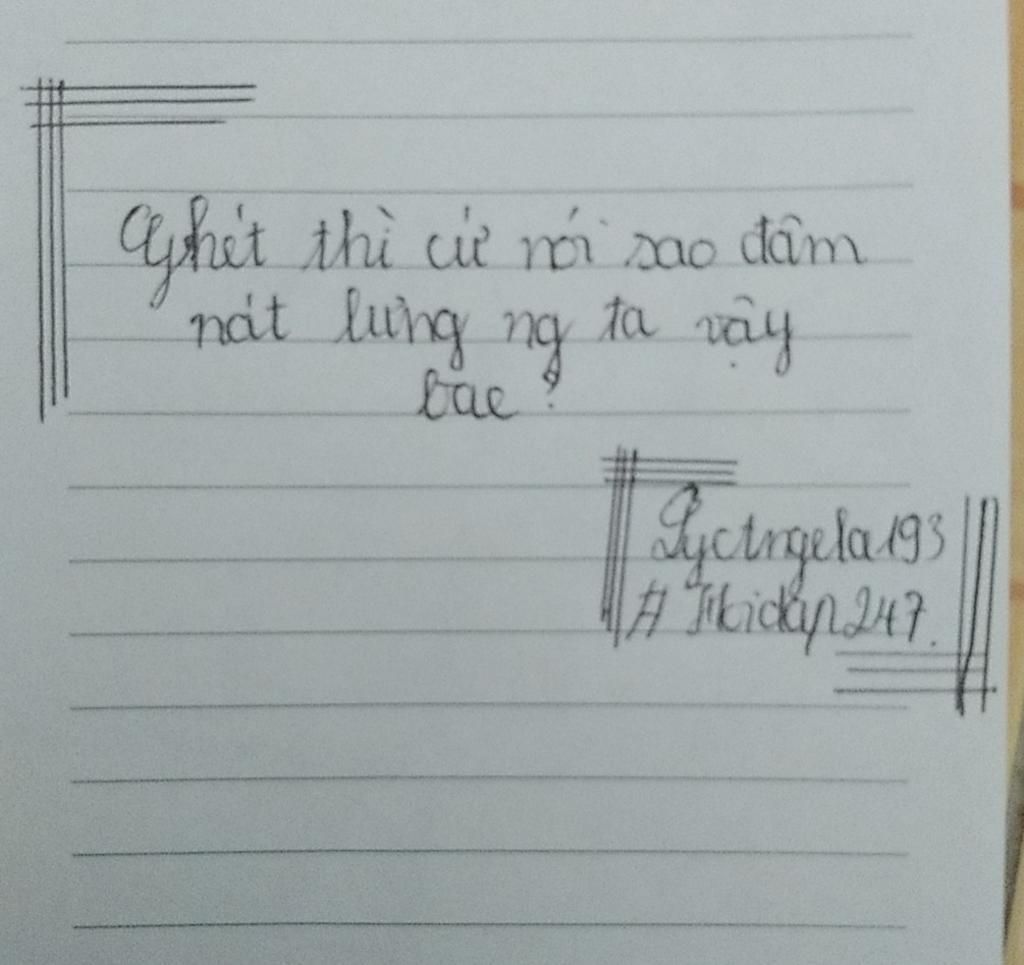 Ghét thì cứ nói sao đâm
nát lưng ng ta vậy
bae?
Lyctngela193